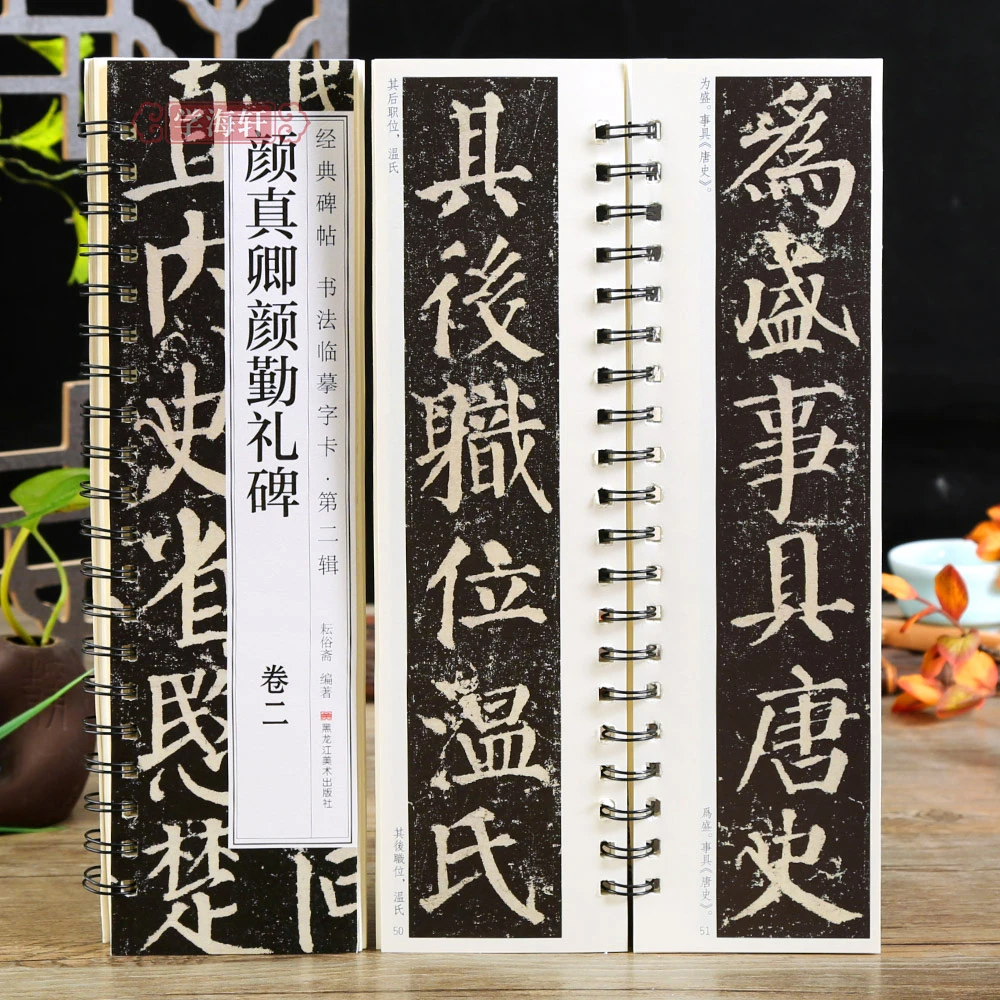 学海轩
经典碑帖 书法临摹字卡·第二辑
颜真卿颜勤礼碑
卷二
耘俗斋 编著
黑龙江美术出版社
直内史省愍楚
其后职位,温氏
其後職位温氏
其後職位,温氏
50
为盛。事具《唐史》。
為盛事具唐史
爲盛。事具《唐史》。
51